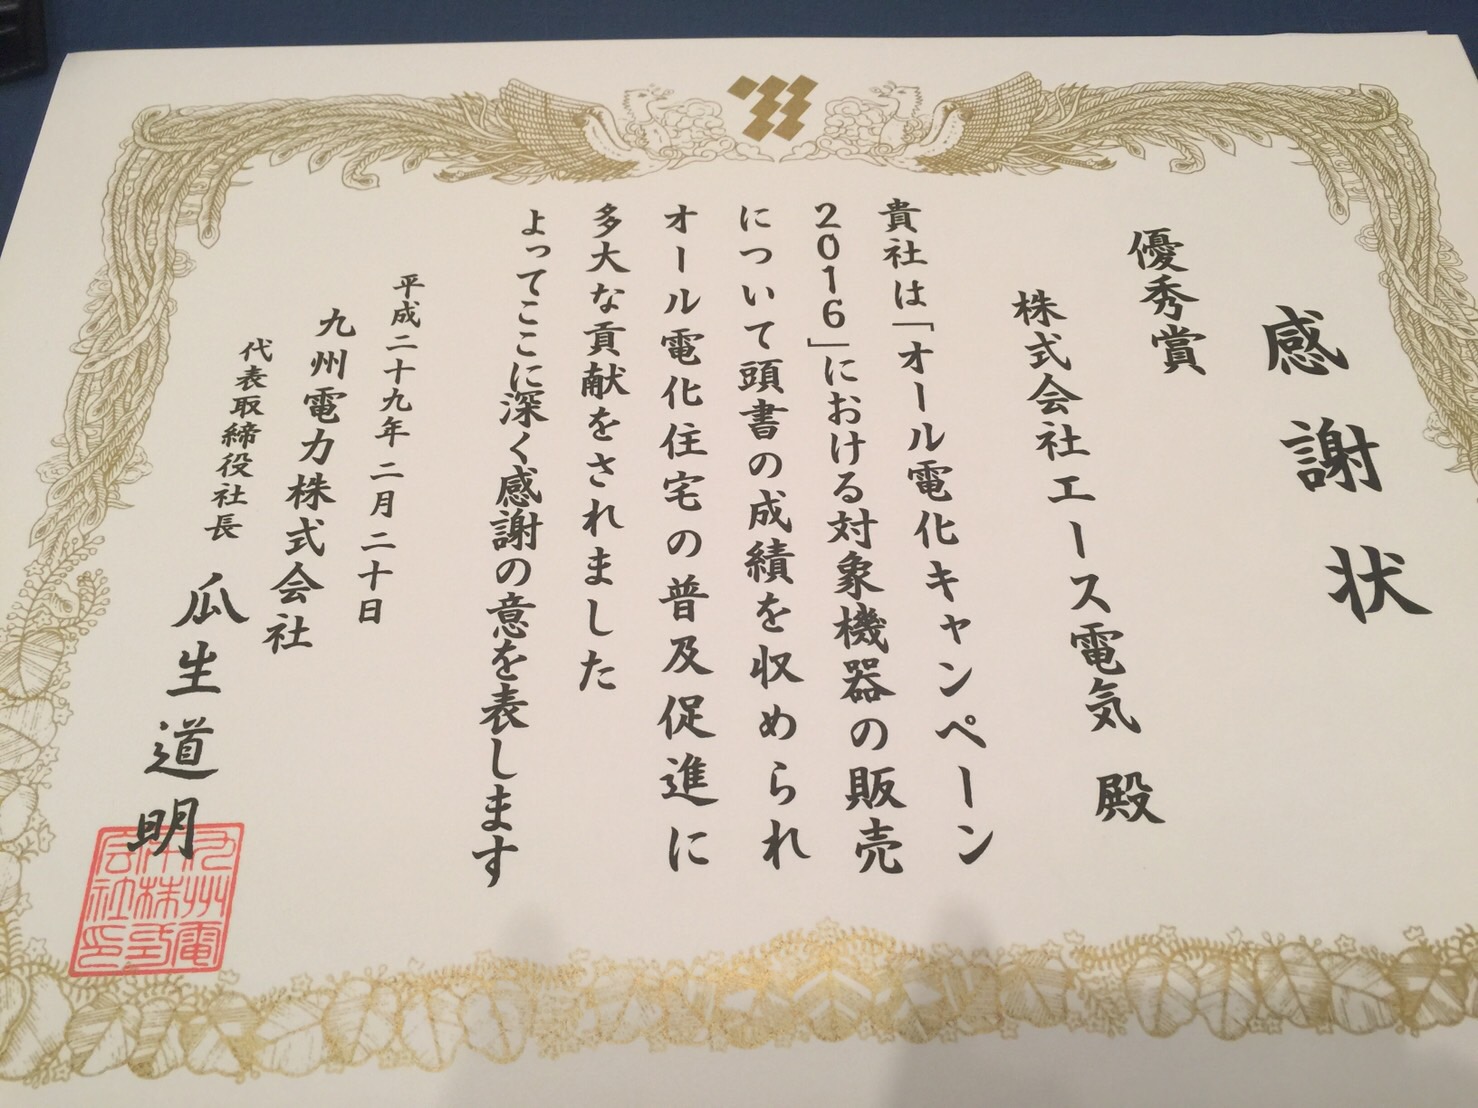 感謝状
優秀賞
株式会社エース電気 殿
貴社は「オール電化キャンペーン
2016」における対象機器の販売
について頭書の成績を収められ
オール電化住宅の普及促進に
多大な貢献をされました
よってここに深く感謝の意を表します
平成二十九年二月二十日
九州電力株式会社
代表取締役社長 瓜生道明
九州電
力株式
会社印